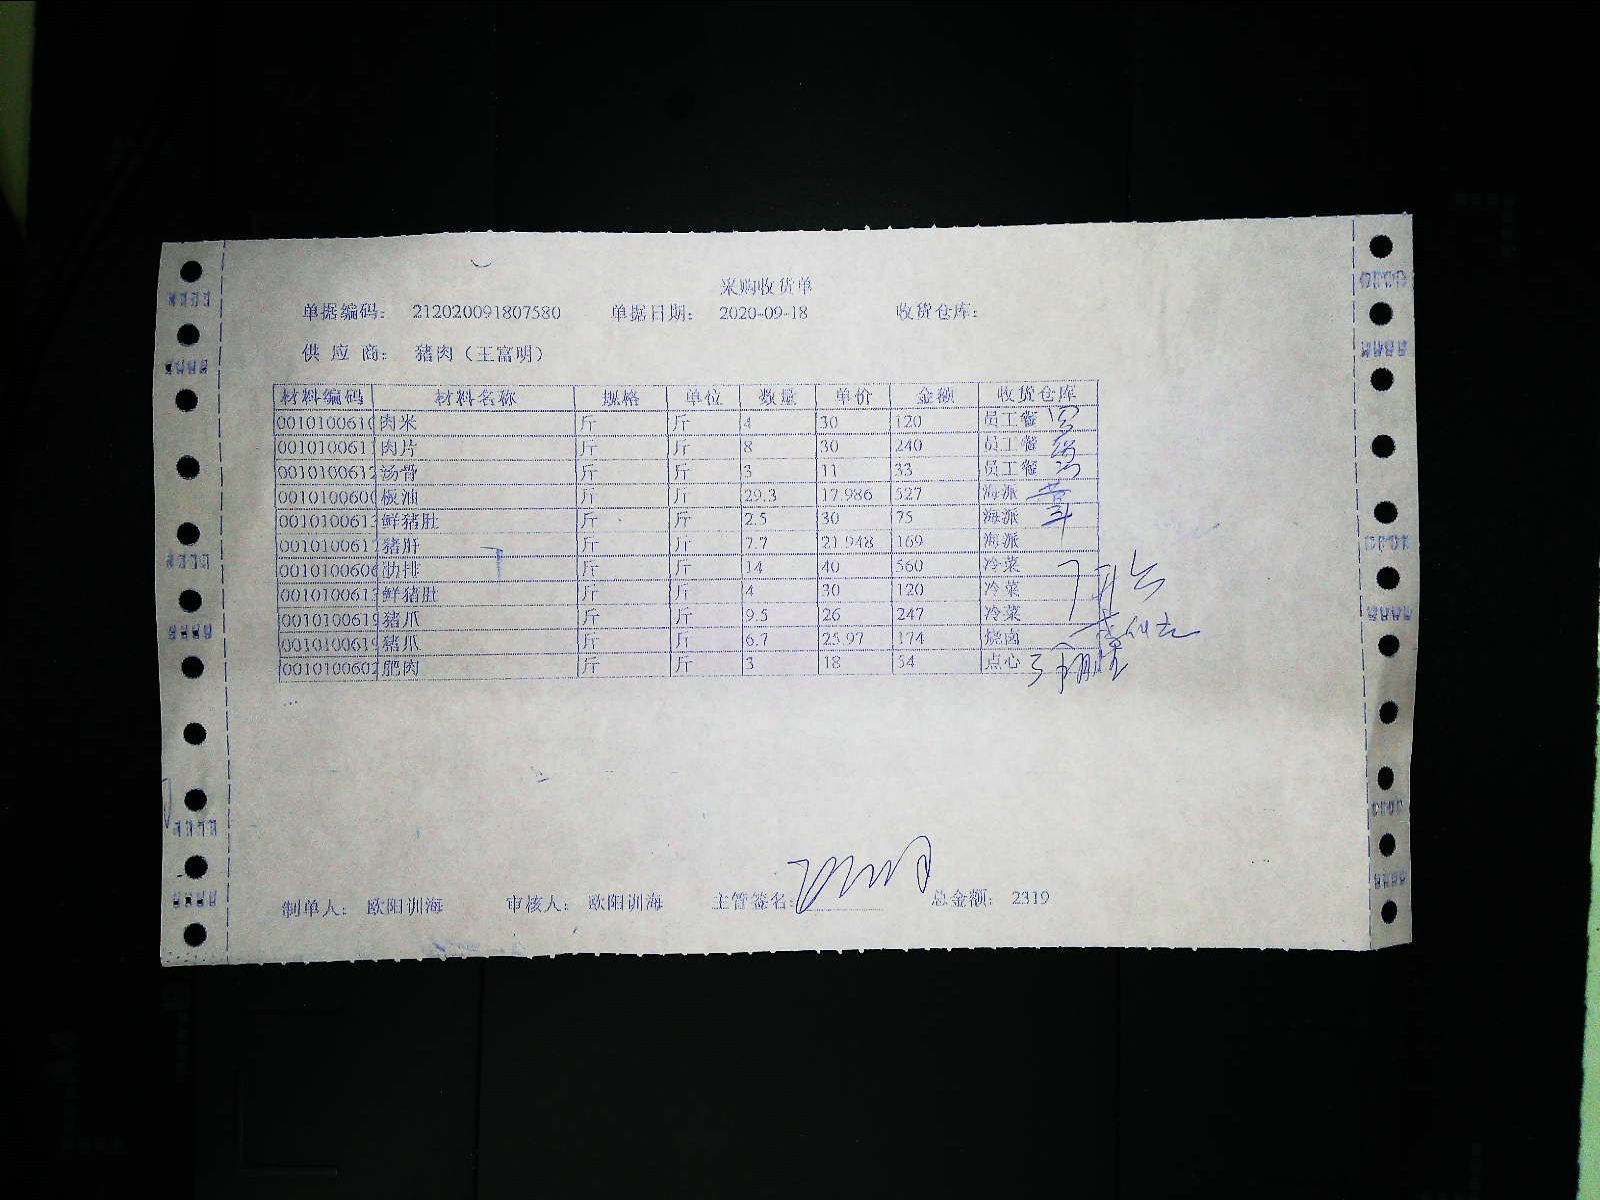 采购收货单
单据编码： 212020091807580 单据日期： 2020-09-18 收货仓库：
供 应 商： 猪肉（王富明）
材料编码 材料名称 规格 单位 数量 单价 金额 收货仓库
0010100610 肉米 斤 斤 4 30 120 员工餐
001010061 肉片 斤 斤 8 30 240 员工餐
0010100612 汤骨 斤 斤 3 11 33 员工餐
0010100600 板油 斤 斤 29.3 17.986 527 海派
0010100613 鲜猪肚 斤 斤 2.5 30 75 海派
001010061 猪肝 斤 斤 7.7 21.948 169 海派
0010100606 肋排 斤 斤 14 40 560 冷菜
0010100613 鲜猪肚 斤 斤 4 30 120 冷菜
0010100619 猪爪 斤 斤 9.5 26 247 冷菜
0010100619 猪爪 斤 斤 6.7 25.97 174 烧卤
0010100602 肥肉 斤 斤 3 18 54 点心
制单人： 欧阳训海 审核人： 欧阳训海 主管签名： 总金额： 2319